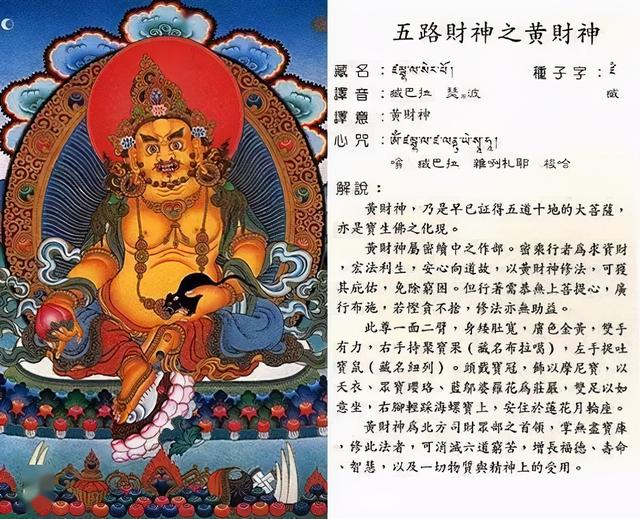 五路財神之黃財神
藏名：ཛམྦྷ་ལ་སེར་པོ། 種子字：ཛཾ
譯音：臧巴拉 瑟ㄦ波 臧
譯意：黃財神
心咒：ༀ་ཛམྦྷ་ལ་ཛ་ལནྡྲ་ཡེ་སྭཱ་ཧཱ།
嗡 臧巴拉 雜咧札耶 梭哈
解說：
黃財神，乃是早已証得五道十地的大菩薩，
亦是寶生佛之化現。
黃財神屬密續中之作部。密乘行者為求資財
，宏法利生，安心向道故，以黃財神修法，可獲
其庇佑，免除窮困。但行者需恭無上菩提心，廣
行布施，若慳貪不捨，修法亦無助益。
此尊一面二臂，身矮肚寬，膚色金黃，雙手
有力，右手持聚寶果（藏名布拉噶），左手捉吐
寶鼠（藏名紐列）。頭戴寶冠，飾以摩尼寶，以
天衣、眾寶瓔珞、藍邬婆羅花為莊嚴，雙足以如
意坐，右腳輕踩海螺寶上，安住於蓮花月輪座。
黃財神為北方司財眾部之首領，掌無盡寶庫
，修此法者，可消滅六道窮苦，增長福德、壽命
、智慧，以及一切物質與精神上的受用。